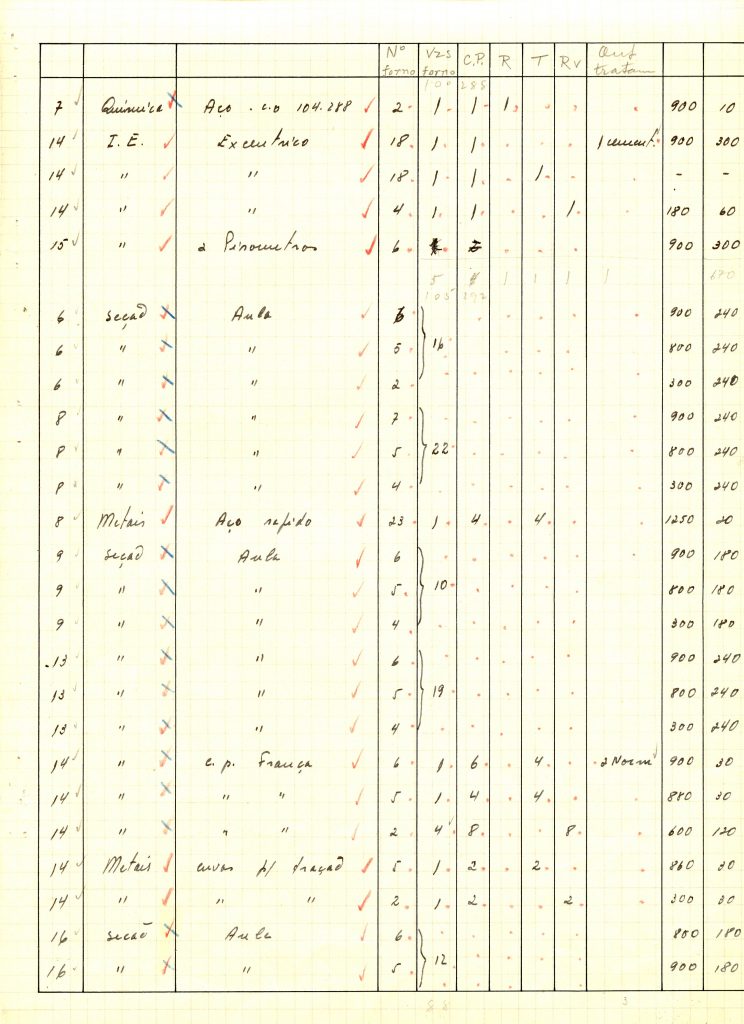 Nº Vzs C.P. R T Rv Out
forno forno tratam
100 285
7 Química Aço c.o 104.288 2 1 1 1 900 10
14 I.E. Excentrico 18 1 1 1 cement. 900 300
14 " " 18 1 1 1 - -
14 " " 4 1 1 1 180 60
15 " 2 Pirometros 6 900 300
5 1 1 1 1 670
105 292
6 seçaõ Aula 6 900 240
6 " " 5 16 800 240
6 " " 2 300 240
8 " " 7 900 240
8 " " 5 22 800 240
8 " " 4 300 240
8 Metais Aço rapido 23 1 4 4 1250 20
9 seçaõ Aula 6 900 180
9 " " 5 10 800 180
9 " " 4 300 180
13 " " 6 900 240
13 " " 5 19 800 240
13 " " 4 300 240
14 " c.p. França 6 1 6 4 2 Norm 900 30
14 " " " 5 1 4 4 880 30
14 " " " 2 4 8 8 600 120
14 Metais p/ traçaõ 5 1 2 2 860 30
14 " " " 2 1 2 2 300 30
16 seçaõ Aula 6 800 180
16 " " 5 12 900 180
88 3